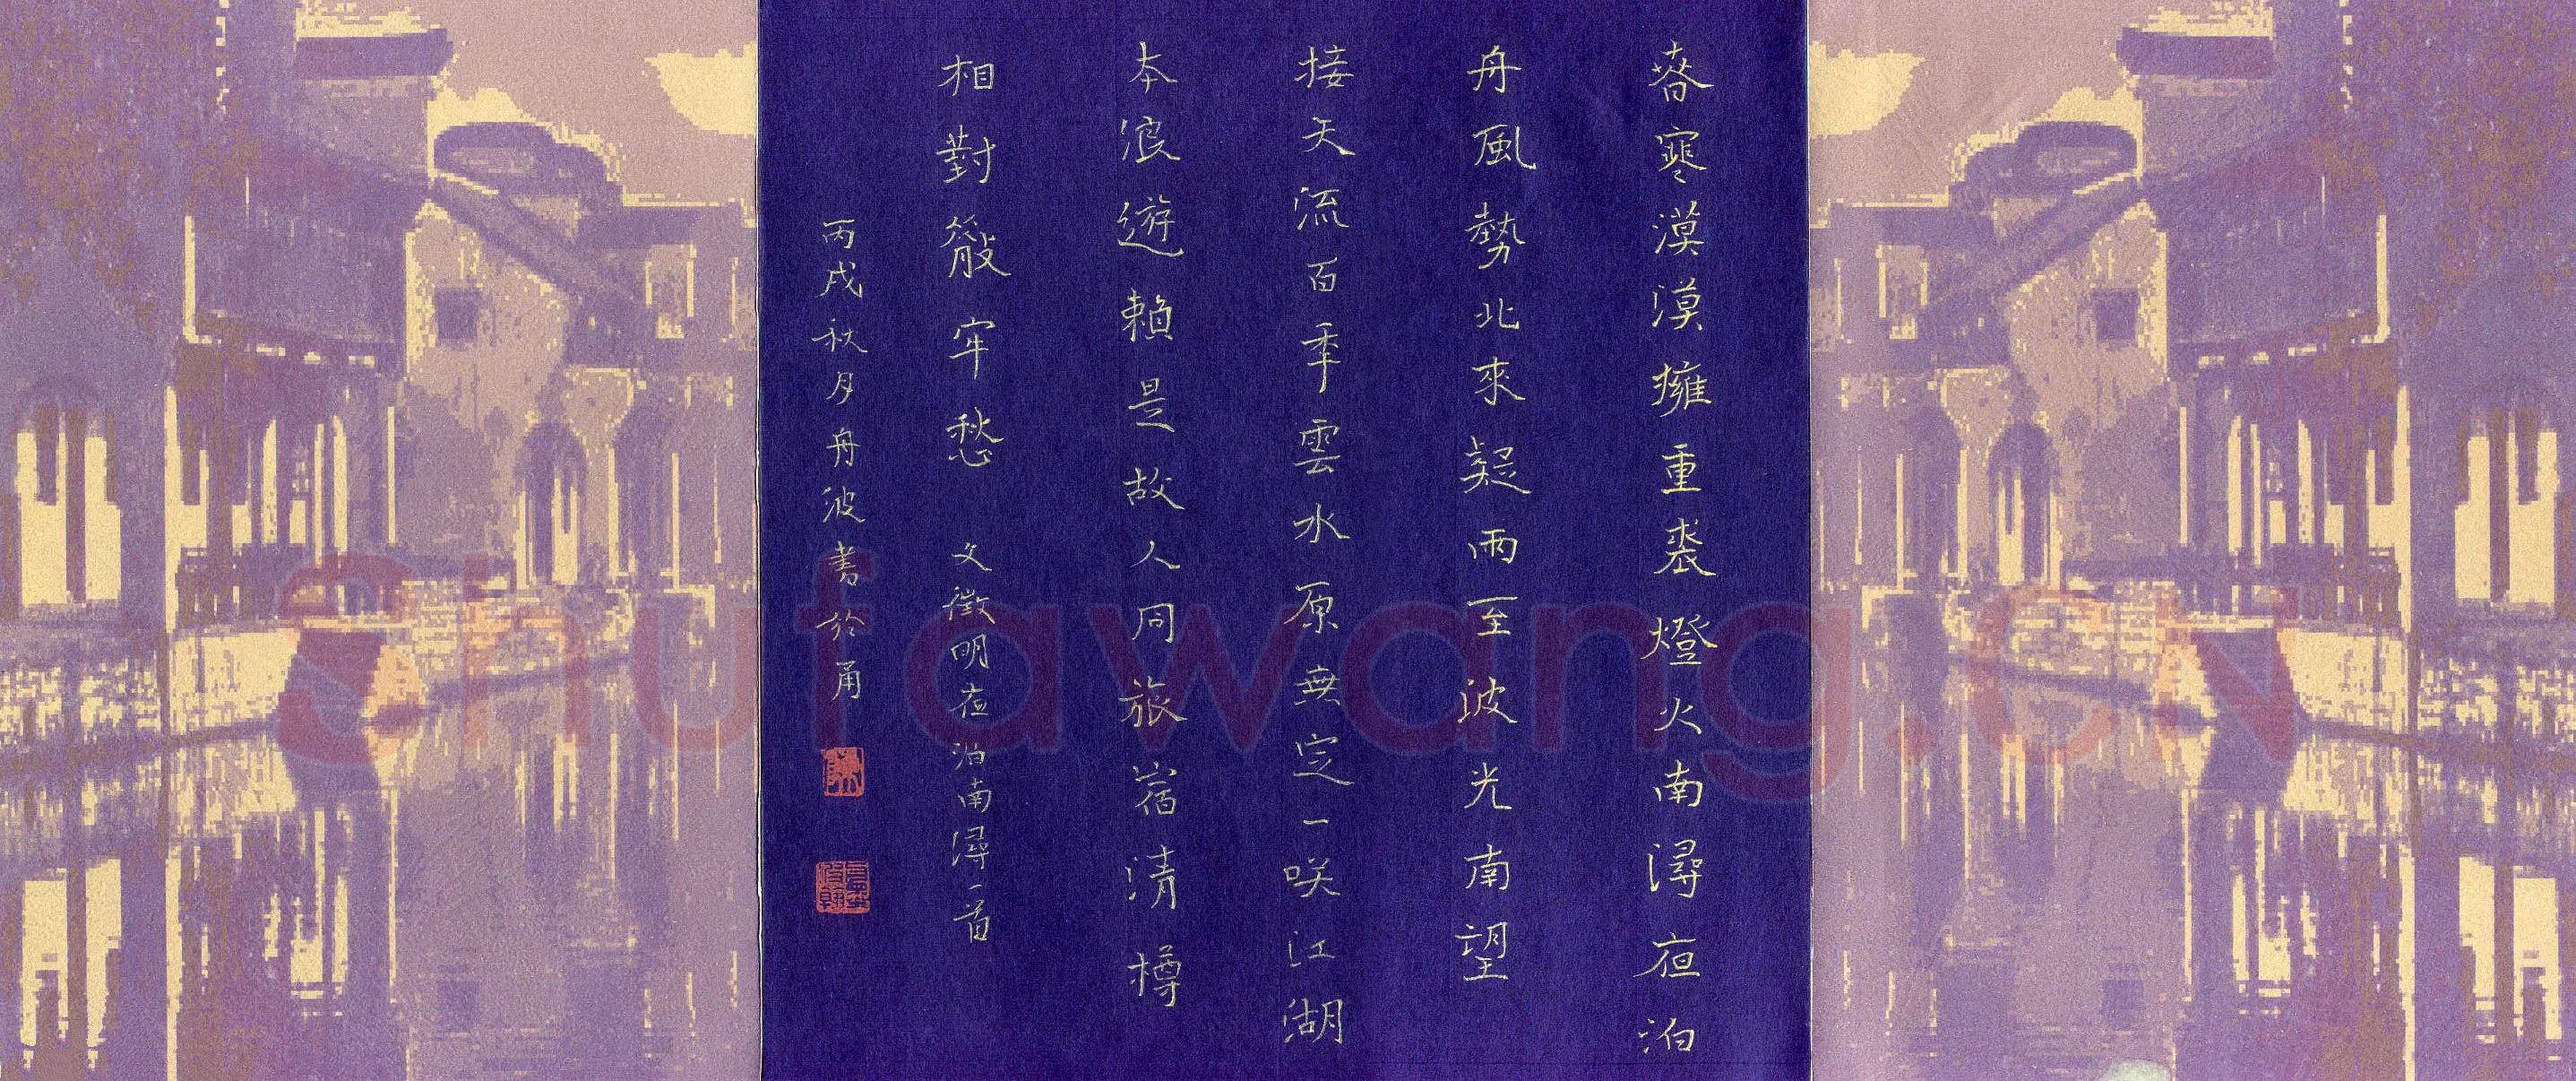 春寒漠漠擁重裘燈火南潯夜泊
舟風勢北來疑雨至波光南望
接天流百年雲水原無定一咲江湖
本浪遊賴是故人同旅宿清樽
相對散牢愁 文徵明夜泊南潯一首
丙戌秋月舟波書於甬
Shufawang.CN